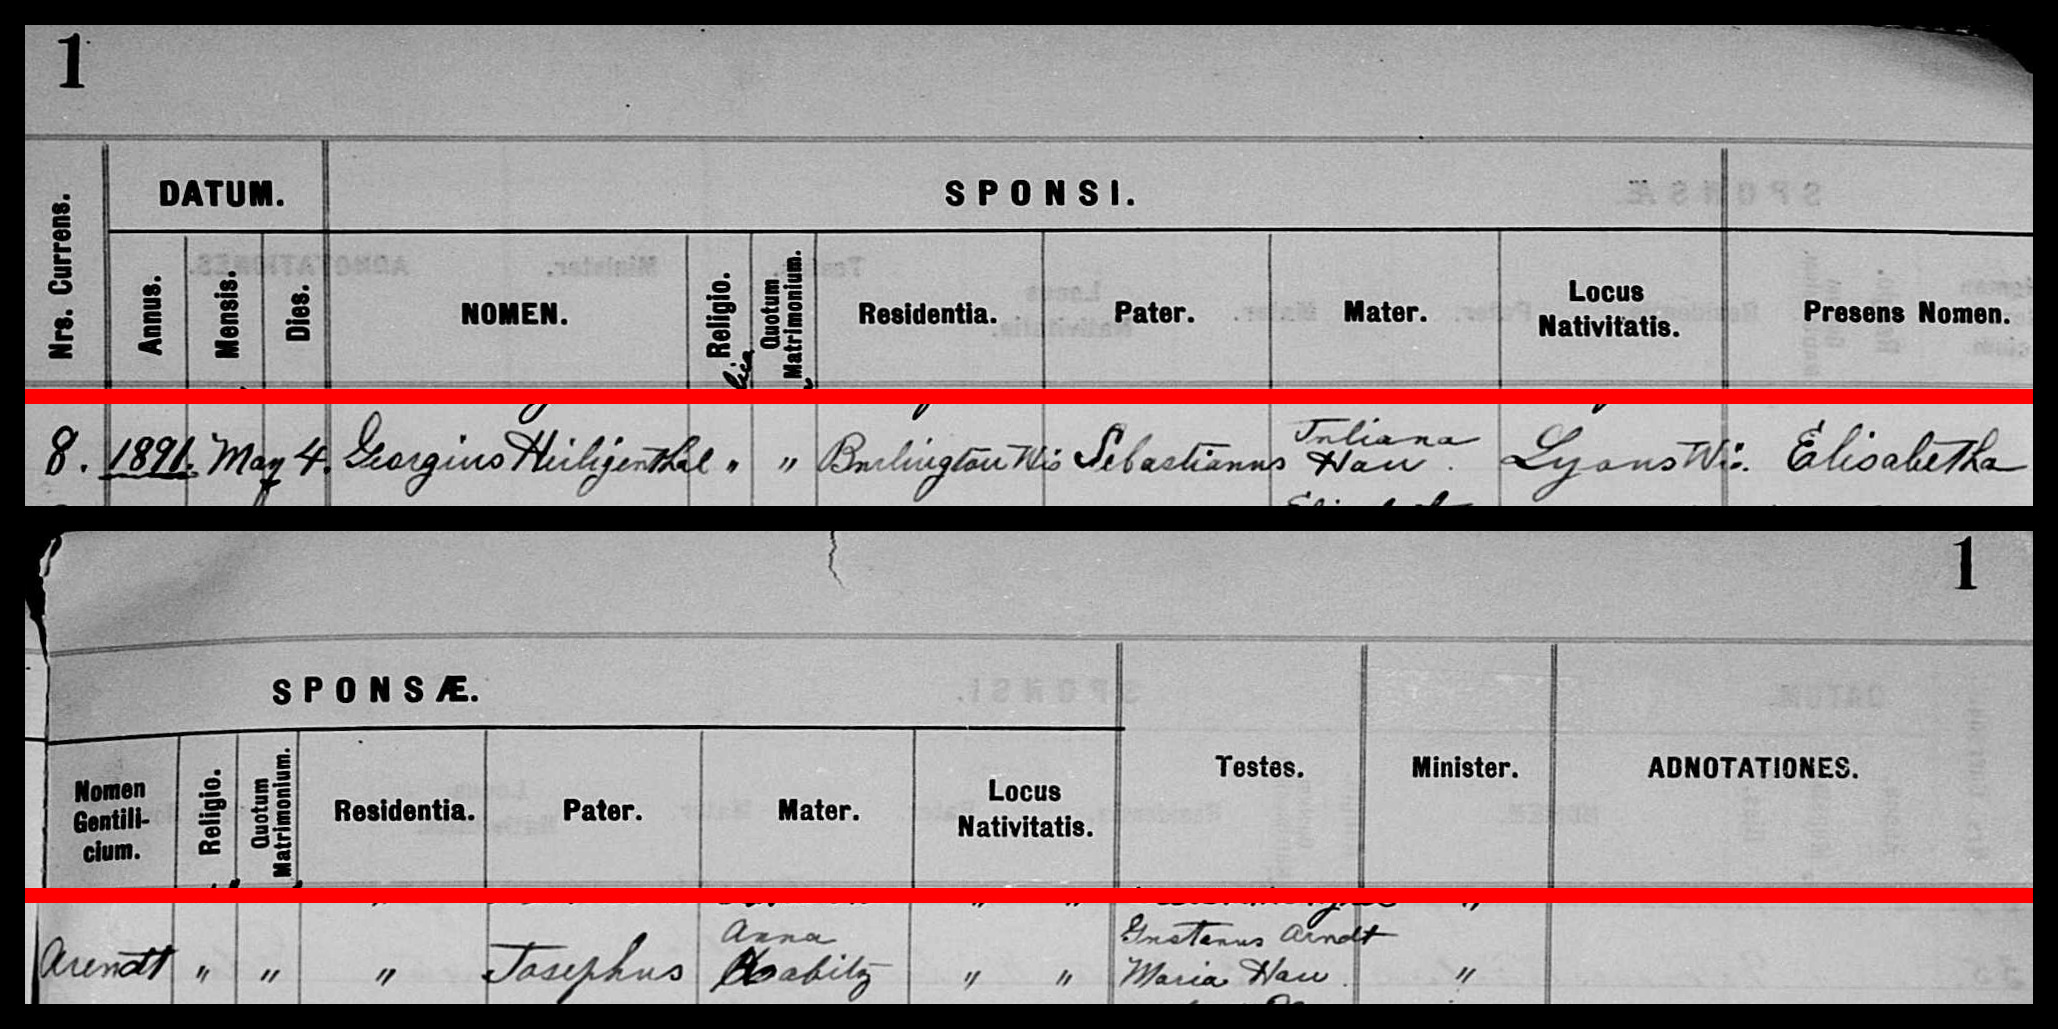 1
DATUM.
SPONSI.
Nrs. Currens.
Annus.
Mensis.
Dies.
NOMEN.
Religio.
Quotum Matrimonium.
Residentia.
Pater.
Mater.
Locus
Nativitatis.
Presens Nomen.
Juliana
8. 1891. May 4. Georgius Heiligenthal " " Burlington Wis Sebastianus Hau. Lyons Wis. Elisabetha
1
SPONSÆ.
Nomen
Gentili-
cium.
Religio.
Quotum
Matrimonium.
Residentia.
Pater.
Mater.
Locus
Nativitatis.
Testes.
Minister.
ADNOTATIONES.
Anna Gustavus Arndt
Arendt " " " Josephus " " Maria Hau. "